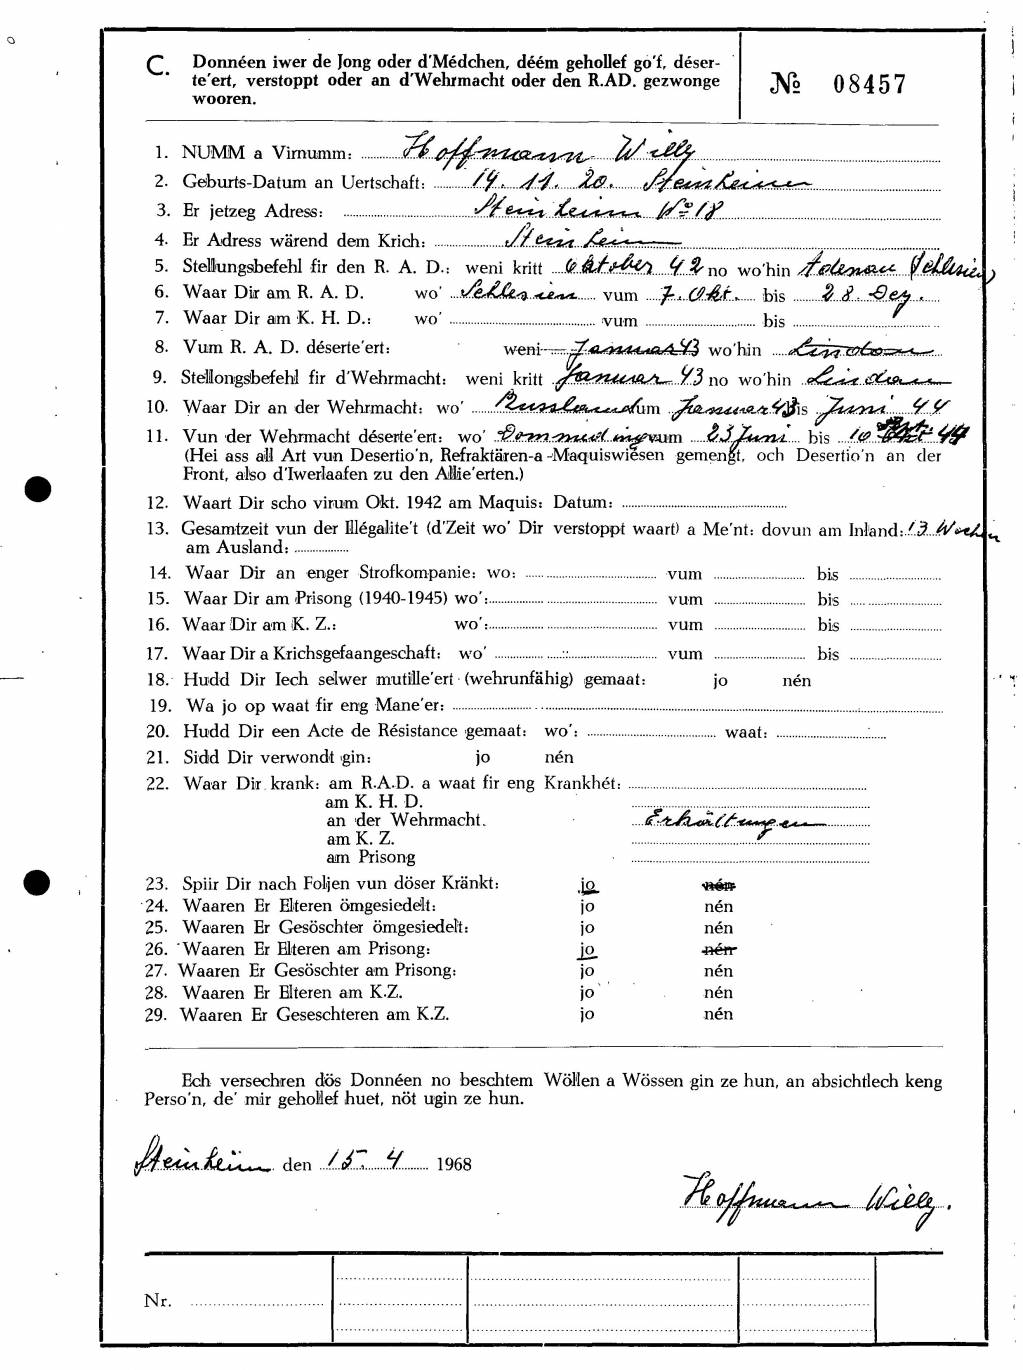 C. Donnéen iwer de Jong oder d'Médchen, déém gehollef go'f, déser-
te'ert, verstoppt oder an d'Wehrmacht oder den R.AD. gezwonge
wooren.
№ 08457
1. NUMM a Virnumm: Hoffmann Willy
2. Geburts-Datum an Uertschaft: 14. 11. 20. Steinheim
3. Er jetzeg Adress: Steinheim No 18
4. Er Adress wärend dem Krich: Steinheim
5. Stellungsbefehl fir den R. A. D.: weni kritt Oktober 42 no wo'hin Adenau (Schlesien)
6. Waar Dir am R. A. D. wo' Schlesien vum 7. Okt. bis 28. Dez.
7. Waar Dir am K. H. D.: wo' vum bis
8. Vum R. A. D. déserte'ert: weni Januar 43 wo'hin Lindau
9. Stellongsbefehl fir d'Wehrmacht: weni kritt Januar 43 no wo'hin Lindau
10. Waar Dir an der Wehrmacht: wo' Russland vum Januar 43 bis Juni 44
11. Vun der Wehrmacht déserte'ert: wo' vum 23 Juni bis 10 Okt 44
(Hei ass all Art vun Desertio'n, Refraktären-a-Maquiswiesen gemengt, och Desertio'n an der
Front, also d'Iwerlaafen zu den Allie'erten.)
12. Waart Dir scho virum Okt. 1942 am Maquis: Datum:
13. Gesamtzeit vun der Illégalite't (d'Zeit wo' Dir verstoppt waart) a Me'nt: dovun am Inland: 13 Wochen
am Ausland:
14. Waar Dir an enger Strofkompanie: wo: vum bis
15. Waar Dir am Prisong (1940-1945) wo': vum bis
16. Waar Dir am K. Z.: wo': vum bis
17. Waar Dir a Krichsgefaangeschaft: wo' vum bis
18. Hudd Dir Iech selwer mutille'ert (wehrunfähig) gemaat: jo nén
19. Wa jo op waat fir eng Mane'er:
20. Hudd Dir een Acte de Résistance gemaat: wo': waat:
21. Sidd Dir verwondt gin: jo nén
22. Waar Dir krank: am R.A.D. a waat fir eng Krankhét:
am K. H. D.
an der Wehrmacht. Erkältungen
am K. Z.
am Prisong
23. Spiir Dir nach Foljen vun döser Kränkt: jo nén
24. Waaren Er Elteren ömgesiedelt: jo nén
25. Waaren Er Gesöschter ömgesiedelt: jo nén
26. Waaren Er Elteren am Prisong: jo nén
27. Waaren Er Gesöschter am Prisong: jo nén
28. Waaren Er Elteren am K.Z. jo nén
29. Waaren Er Geseschteren am K.Z. jo nén
Ech versechren dös Donnéen no beschtem Wöllen a Wössen gin ze hun, an absichtlech keng
Perso'n, de' mir gehollef huet, nöt ugin ze hun.
Steinheim den 15. 4 1968
Hoffmann Willy.
Nr.